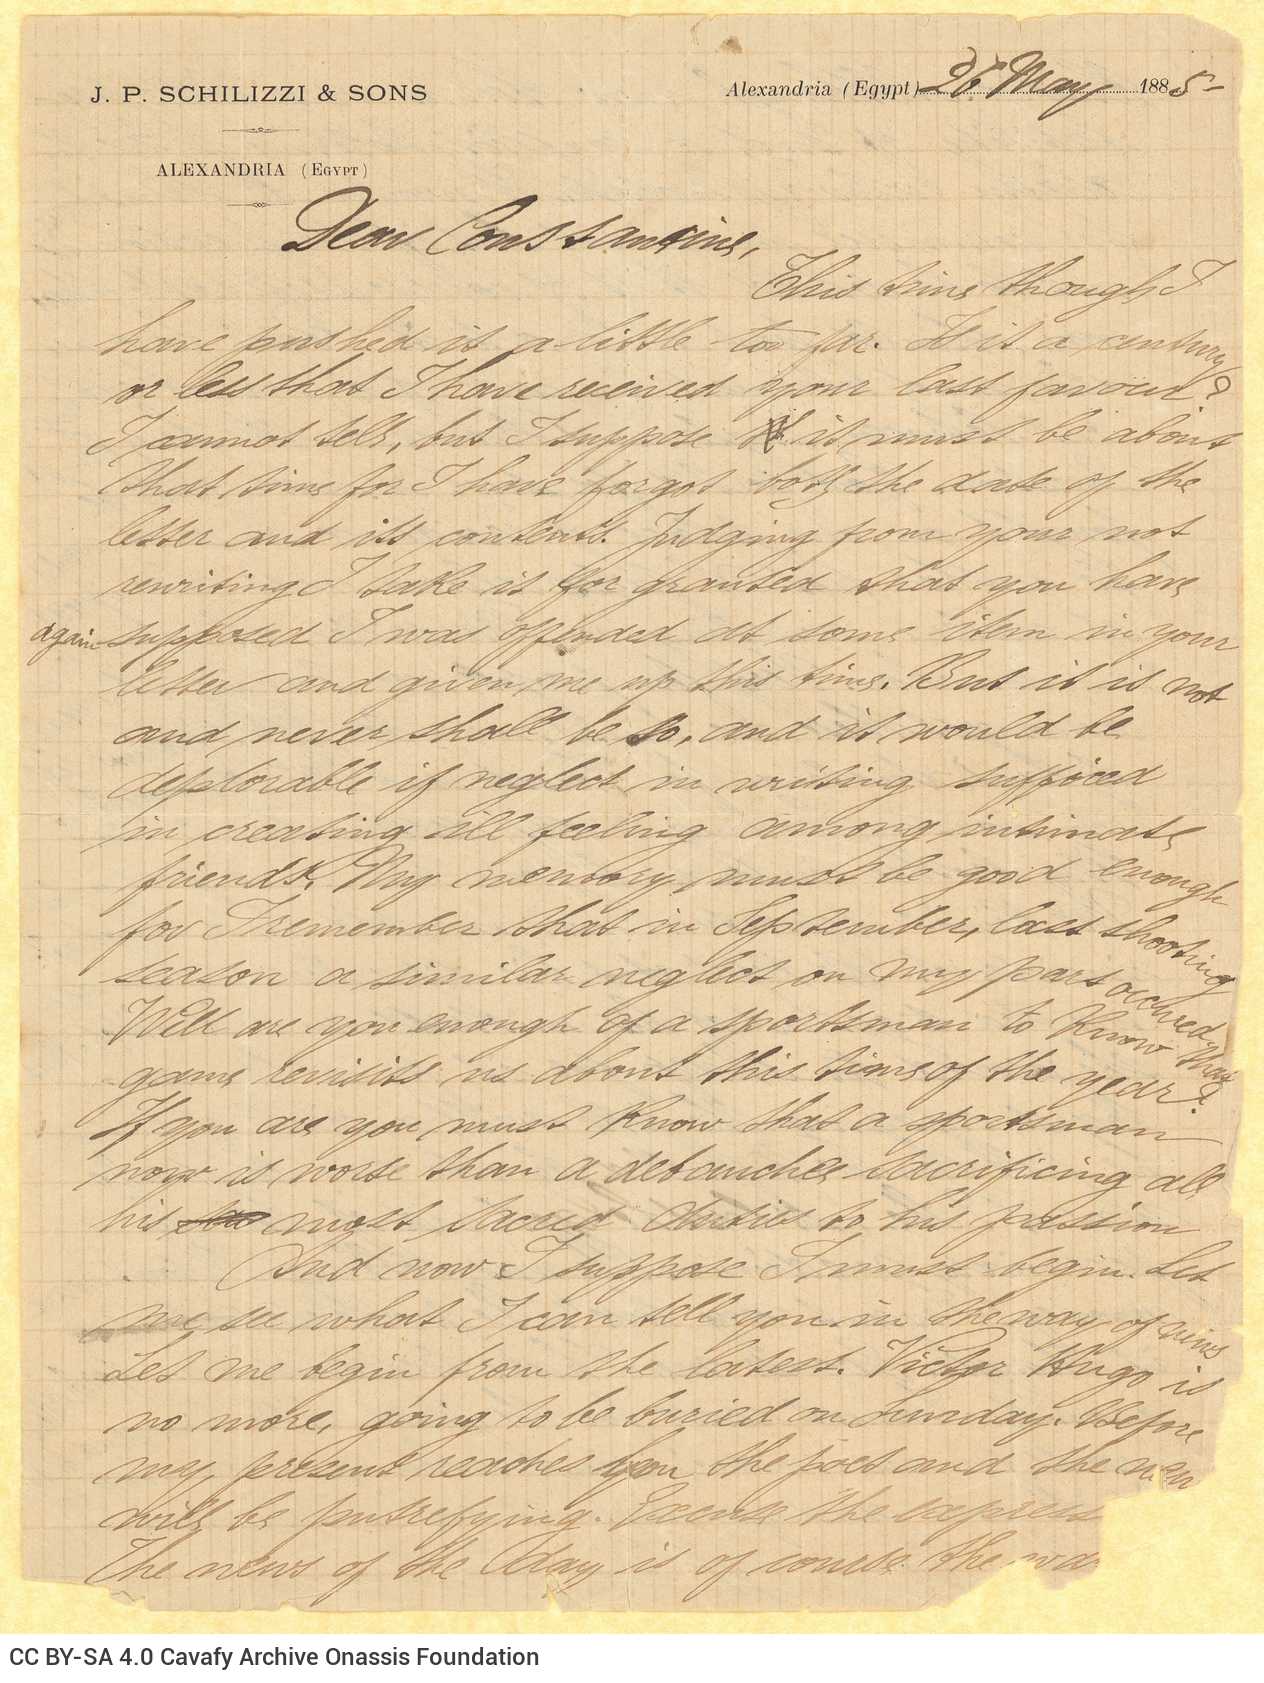 J. P. SCHILIZZI & SONS
ALEXANDRIA (EGYPT)
Alexandria (Egypt) 26 May 1885-
Dear Constantine,
This time though I
have pushed it a little too far. Is it a century
or less that I have received your last favour?
I cannot tell, but I suppose it must be about
that time for I have forgot both the date of the
letter and its contents. Judging from your not
rewriting I take it for granted that you have
again supposed I was offended at some item in your
letter and given me up this time. But it is not
and never shall be so, and it would be
deplorable if neglect in writing sufficed
in creating ill feeling among intimate
friends. My memory must be good enough
for I remember that in September, last shooting
season a similar neglect on my part occured.
Well are you enough of a sportsman to know that
game revisits us about this time of the year?
If you are you must know that a sportsman
now is worse than a debauchee sacrificing all
his most sacred duties to his passion
And now I suppose I must begin. Let
me see what I can tell you in the way of news
Let me begin from the latest. Victor Hugo is
no more, going to be buried on Sunday. Before
my present reaches you the poet and the man
will be putrefying. Excuse the express
The news of the day is of course the wa
CC BY-SA 4.0 Cavafy Archive Onassis Foundation